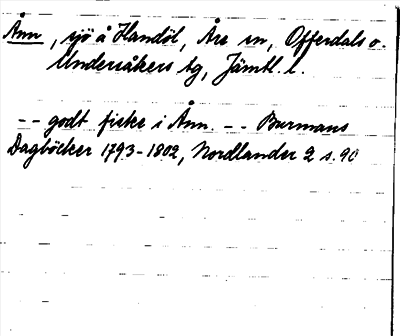 Ånn, sjö å Handöl, Åre sn, Offerdals o.
Undersåkers tg, Jämtl. l.
-- godt fiske i Ånn. -- Burmans
Dagböcker 1793-1802, Nordlander 2 s. 90